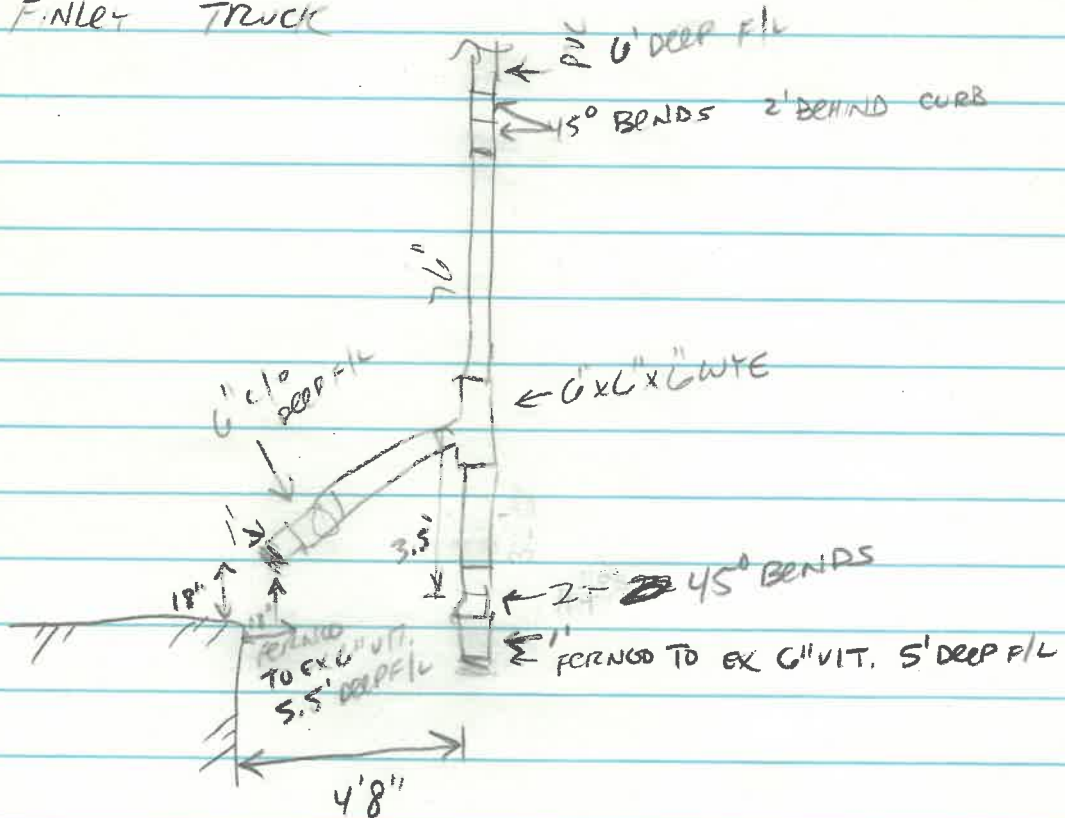 FINLEY TRUCK
PVC 6' DEEP F/L
45° BENDS 2' BEHIND CURB
76"
6" x 6" x 6" WYE
6" c/o
DEEP F/L
1'
3.5'
18"
2 - 45° BENDS
18"
FERNCO
TO EX 6" VIT.
5.5' DEEP F/L
1'
FERNCO TO EX 6" VIT. 5' DEEP F/L
4'8"